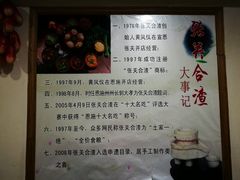 张关合渣
大事记
一、1976年张关合渣创
始人黄凤仪在宣恩
张关开店经营;
二、1997年成功注册
“张关合渣”商标;
三、1997年9月,黄凤仪在恩施开店经营;
四、1998年8月,时任恩施州州长郭大孝为张关合渣题名;
五、2005年4月9日张关合渣在“十大名吃”评选大
赛中获得“十大名吃”称号;
六、1997年至今,众多网民称张关合渣为“土家一
绝”、“全价食粮”;
七、2008年张关合渣入选申遗目录,居手工制作类
之首。